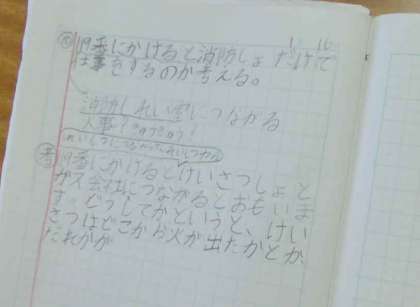 119番にかけると消防しょだけで
仕事をするのか考える。
消防しれい室につながる
人事
考 119番にかけるとけいさつしょと
ガス会社につながるとおもいま
す。どうしてかというと、けい
さつはどこから火が出たかとか、
だれかが